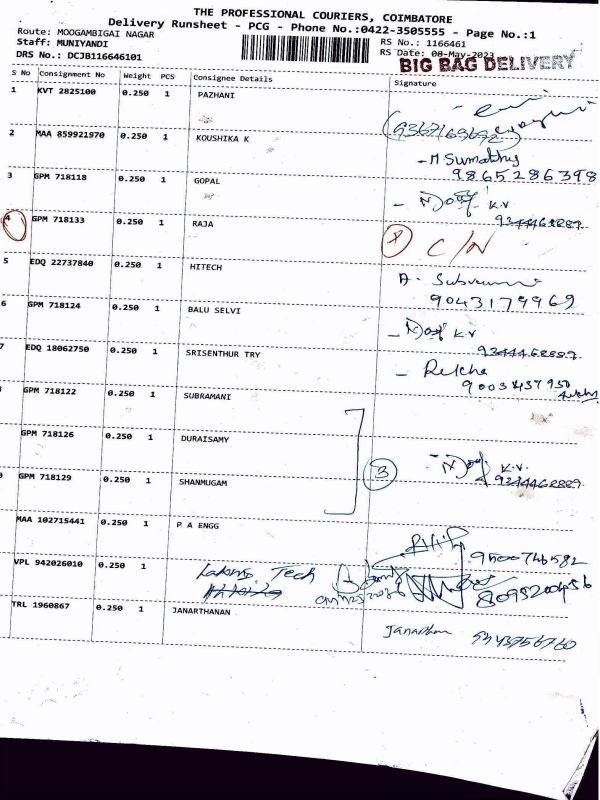 THE PROFESSIONAL COURIERS, COIMBATORE
Delivery Runsheet - PCG - Phone No.:0422-3505555 - Page No.:1
Route: MOOGAMBIGAI NAGAR
RS No.: 1166461
Staff: MUNIYANDI
RS Date: 08-May-2023
DRS No.: DCJB116646101
BIG BAG DELIVERY
S No Consignment No Weight PCS Consignee Details Signature
1 KVT 2825100 0.250 1 PAZHANI
9367163692
2 MAA 859921970 0.250 1 KOUSHIKA K
- M Sumathy
9865286398
3 GPM 718118 0.250 1 GOPAL
K.V
9344468889
4 GPM 718133 0.250 1 RAJA
C/N
5 EDQ 22737840 0.250 1 HITECH
A.
9043179969
6 GPM 718124 0.250 1 BALU SELVI
K.V
9344468889
7 EDQ 18062750 0.250 1 SRISENTHUR TRY
- Rekha
9003437950
GPM 718122 0.250 1 SUBRAMANI
GPM 718126 0.250 1 DURAISAMY
3
K.V.
9344468889
GPM 718129 0.250 1 SHANMUGAM
MAA 102715441 0.250 1 P A ENGG
9500746582
VPL 942026010 0.250 1 Tech
8095200456
TRL 1960867 0.250 1 JANARTHANAN
Janarthan 9343756760